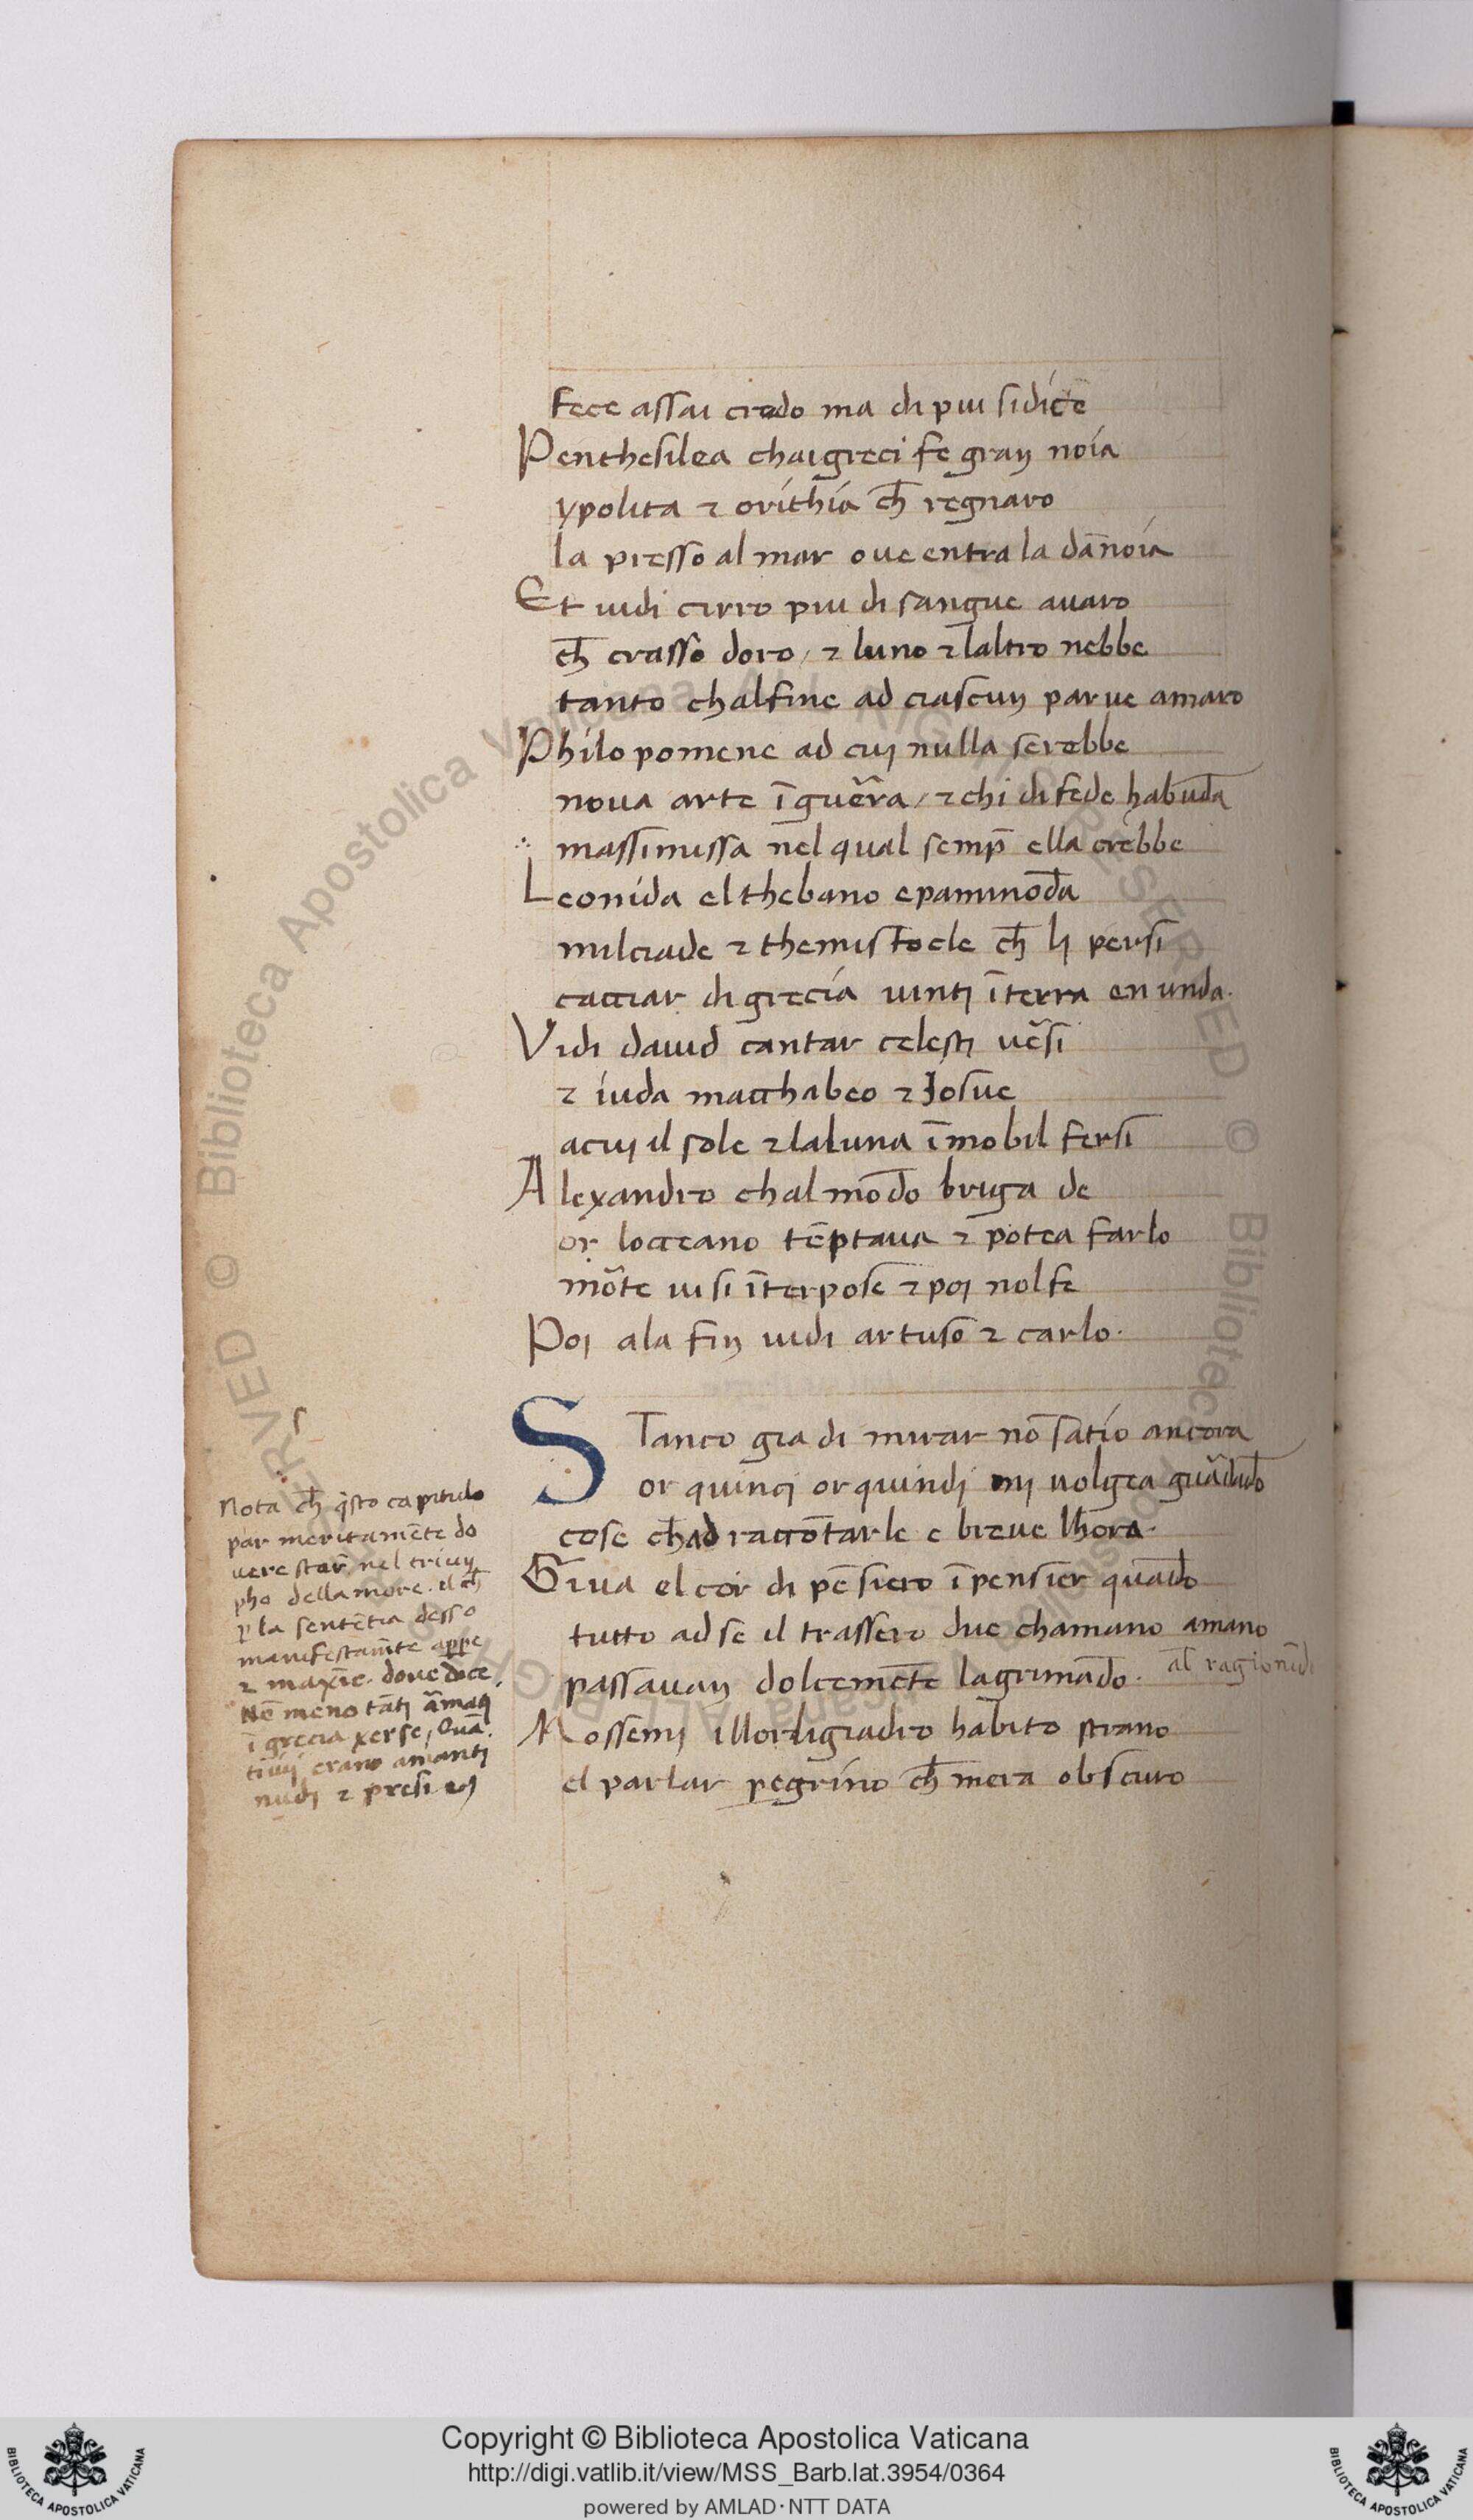 Fece assai credo ma di piu sidicē
Penthesilea chaigreci fe gran noia
ypolita ⁊ orithia ch̄ regnaro
la presso al mar oue entra la dānoia
Et uidi cirro piu di sangue auaro
ch̄ crasso doro / ⁊ luno ⁊ laltro nebbe
tanto chalfine ad ciascun parue amaro
Philopomene ad cui nulla serebbe
noua arte ī guēra / ⁊ chi di fede habūda
massinissa nel qual semp̄ ella crebbe
Leonida el thebano epaminōda
milciade ⁊ themistocle ch̄ li persi
cacciar di grecia uinti ī terra en unda.
Vidi dauid cantar celesti uēsi
⁊ iuda macchabeo ⁊ Josue
acui il sole ⁊ laluna īmobil fersi
Alexandro chal mōdo briga de
or locceano tēptaua ⁊ potea farlo
mōte ui si īterpose ⁊ poi nol fe
Poi ala fin uidi artuso ⁊ carlo.
s
STanco gia di mirar nō satio ancora
or quinci or quindi mi uolgea guādādo
cose ch̄ ad raccōtarle e breue lhora.
Giua el cor di pēsiero ī pensier quādo
tutto ad se il trassero due chamano amano
passauan dolcemēte lagrimādo. al̄ ragionādo
Mossemi illor ligiadro habito strano
el parlar pegrino ch̄ mera obscuro
Nota ch̄ q̄sto capitulo
par meritamēte do
uere star̄ nel triun
pho dellamore. il ch̄
p la sentētia desso
manifestam̄te appe
⁊ maxīe. doue dice.
Ne meno tāti āmāti
ī grecia xerse / Quā
tiui erano amanti
nudi ⁊ presi
Copyright © Biblioteca Apostolica Vaticana
http://digi.vatlib.it/view/MSS_Barb.lat.3954/0364
powered by AMLAD·NTT DATA
BIBLIOTECA APOSTOLICA VATICANA
BIBLIOTECA APOSTOLICA VATICANA
© Biblioteca Apostolica Vaticana ALL RIGHTS RESERVED
© Biblioteca Apostolica Vaticana ALL RIGHTS RESERVED